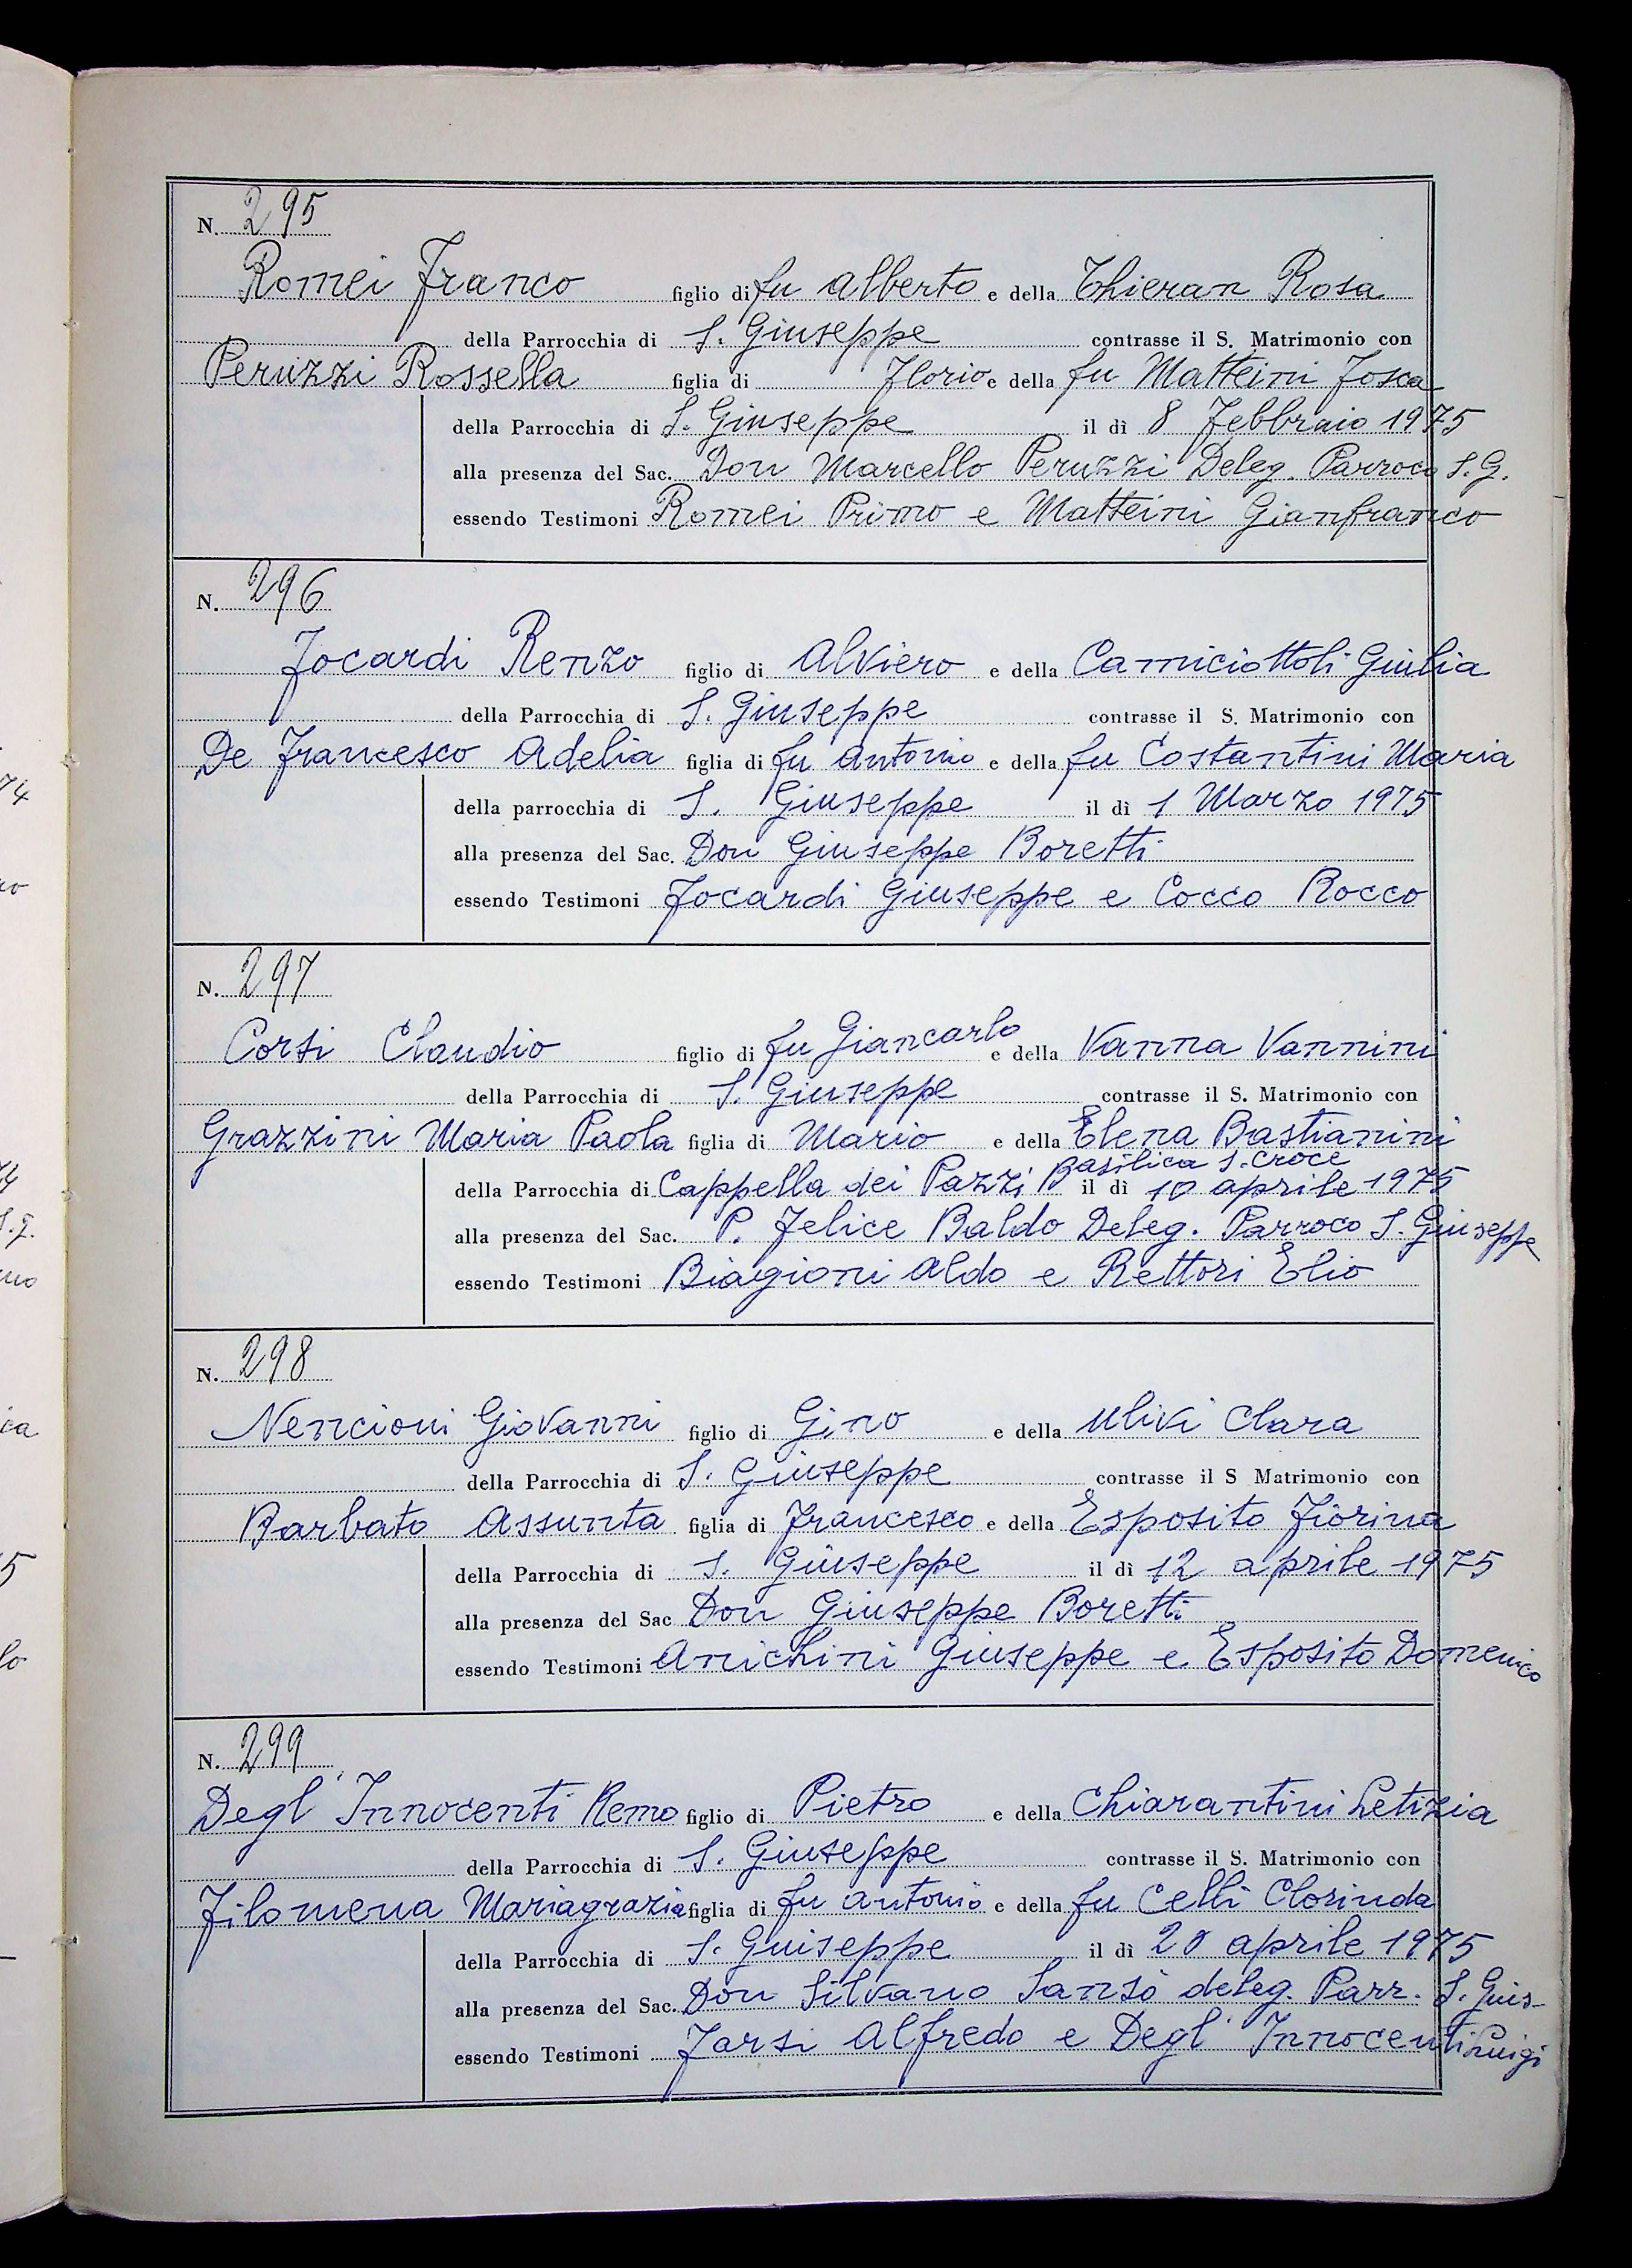 N. 295
Romei Franco figlio di fu Alberto e della Thieran Rosa
della Parrocchia di S. Giuseppe contrasse il S. Matrimonio con
Peruzzi Rossella figlia di Florio e della fu Matteini Tosca
della Parrocchia di S. Giuseppe il dì 8 Febbraio 1975
alla presenza del Sac. Don Marcello Peruzzi Deleg. Parroco S.G.
essendo Testimoni Romei Primo e Matteini Gianfranco
N. 296
Focardi Renzo figlio di Alviero e della Camiciottoli Giulia
della Parrocchia di S. Giuseppe contrasse il S. Matrimonio con
De Francesco Adelia figlia di fu Antonio e della fu Costantini Maria
della parrocchia di S. Giuseppe il dì 1 Marzo 1975
alla presenza del Sac. Don Giuseppe Boretti
essendo Testimoni Focardi Giuseppe e Cocco Rocco
N. 297
Corsi Claudio figlio di fu Giancarlo e della Vanna Vannini
della Parrocchia di S. Giuseppe contrasse il S. Matrimonio con
Grazzini Maria Paola figlia di Mario e della Elena Bastianini
della Parrocchia di Cappella dei Pazzi Basilica S. Croce il dì 10 aprile 1975
alla presenza del Sac. P. Felice Baldo Deleg. Parroco S. Giuseppe
essendo Testimoni Biagioni Aldo e Rettori Elio
N. 298
Nencioni Giovanni figlio di Gino e della Ulivi Clara
della Parrocchia di S. Giuseppe contrasse il S Matrimonio con
Barbato Assunta figlia di Francesco e della Esposito Fiorina
della Parrocchia di S. Giuseppe il dì 12 aprile 1975
alla presenza del Sac Don Giuseppe Boretti
essendo Testimoni Anichini Giuseppe e Esposito Domenico
N. 299
Degl' Innocenti Remo figlio di Pietro e della Chiarantini Letizia
della Parrocchia di S. Giuseppe contrasse il S. Matrimonio con
Filomena Mariagrazia figlia di fu Antonio e della fu Celli Clorinda
della Parrocchia di S. Guiseppe il dì 20 aprile 1975
alla presenza del Sac. Don Silvano Sansò deleg. Parr. S. Guis-
essendo Testimoni Farsi Alfredo e Degl' Innocenti Luigi